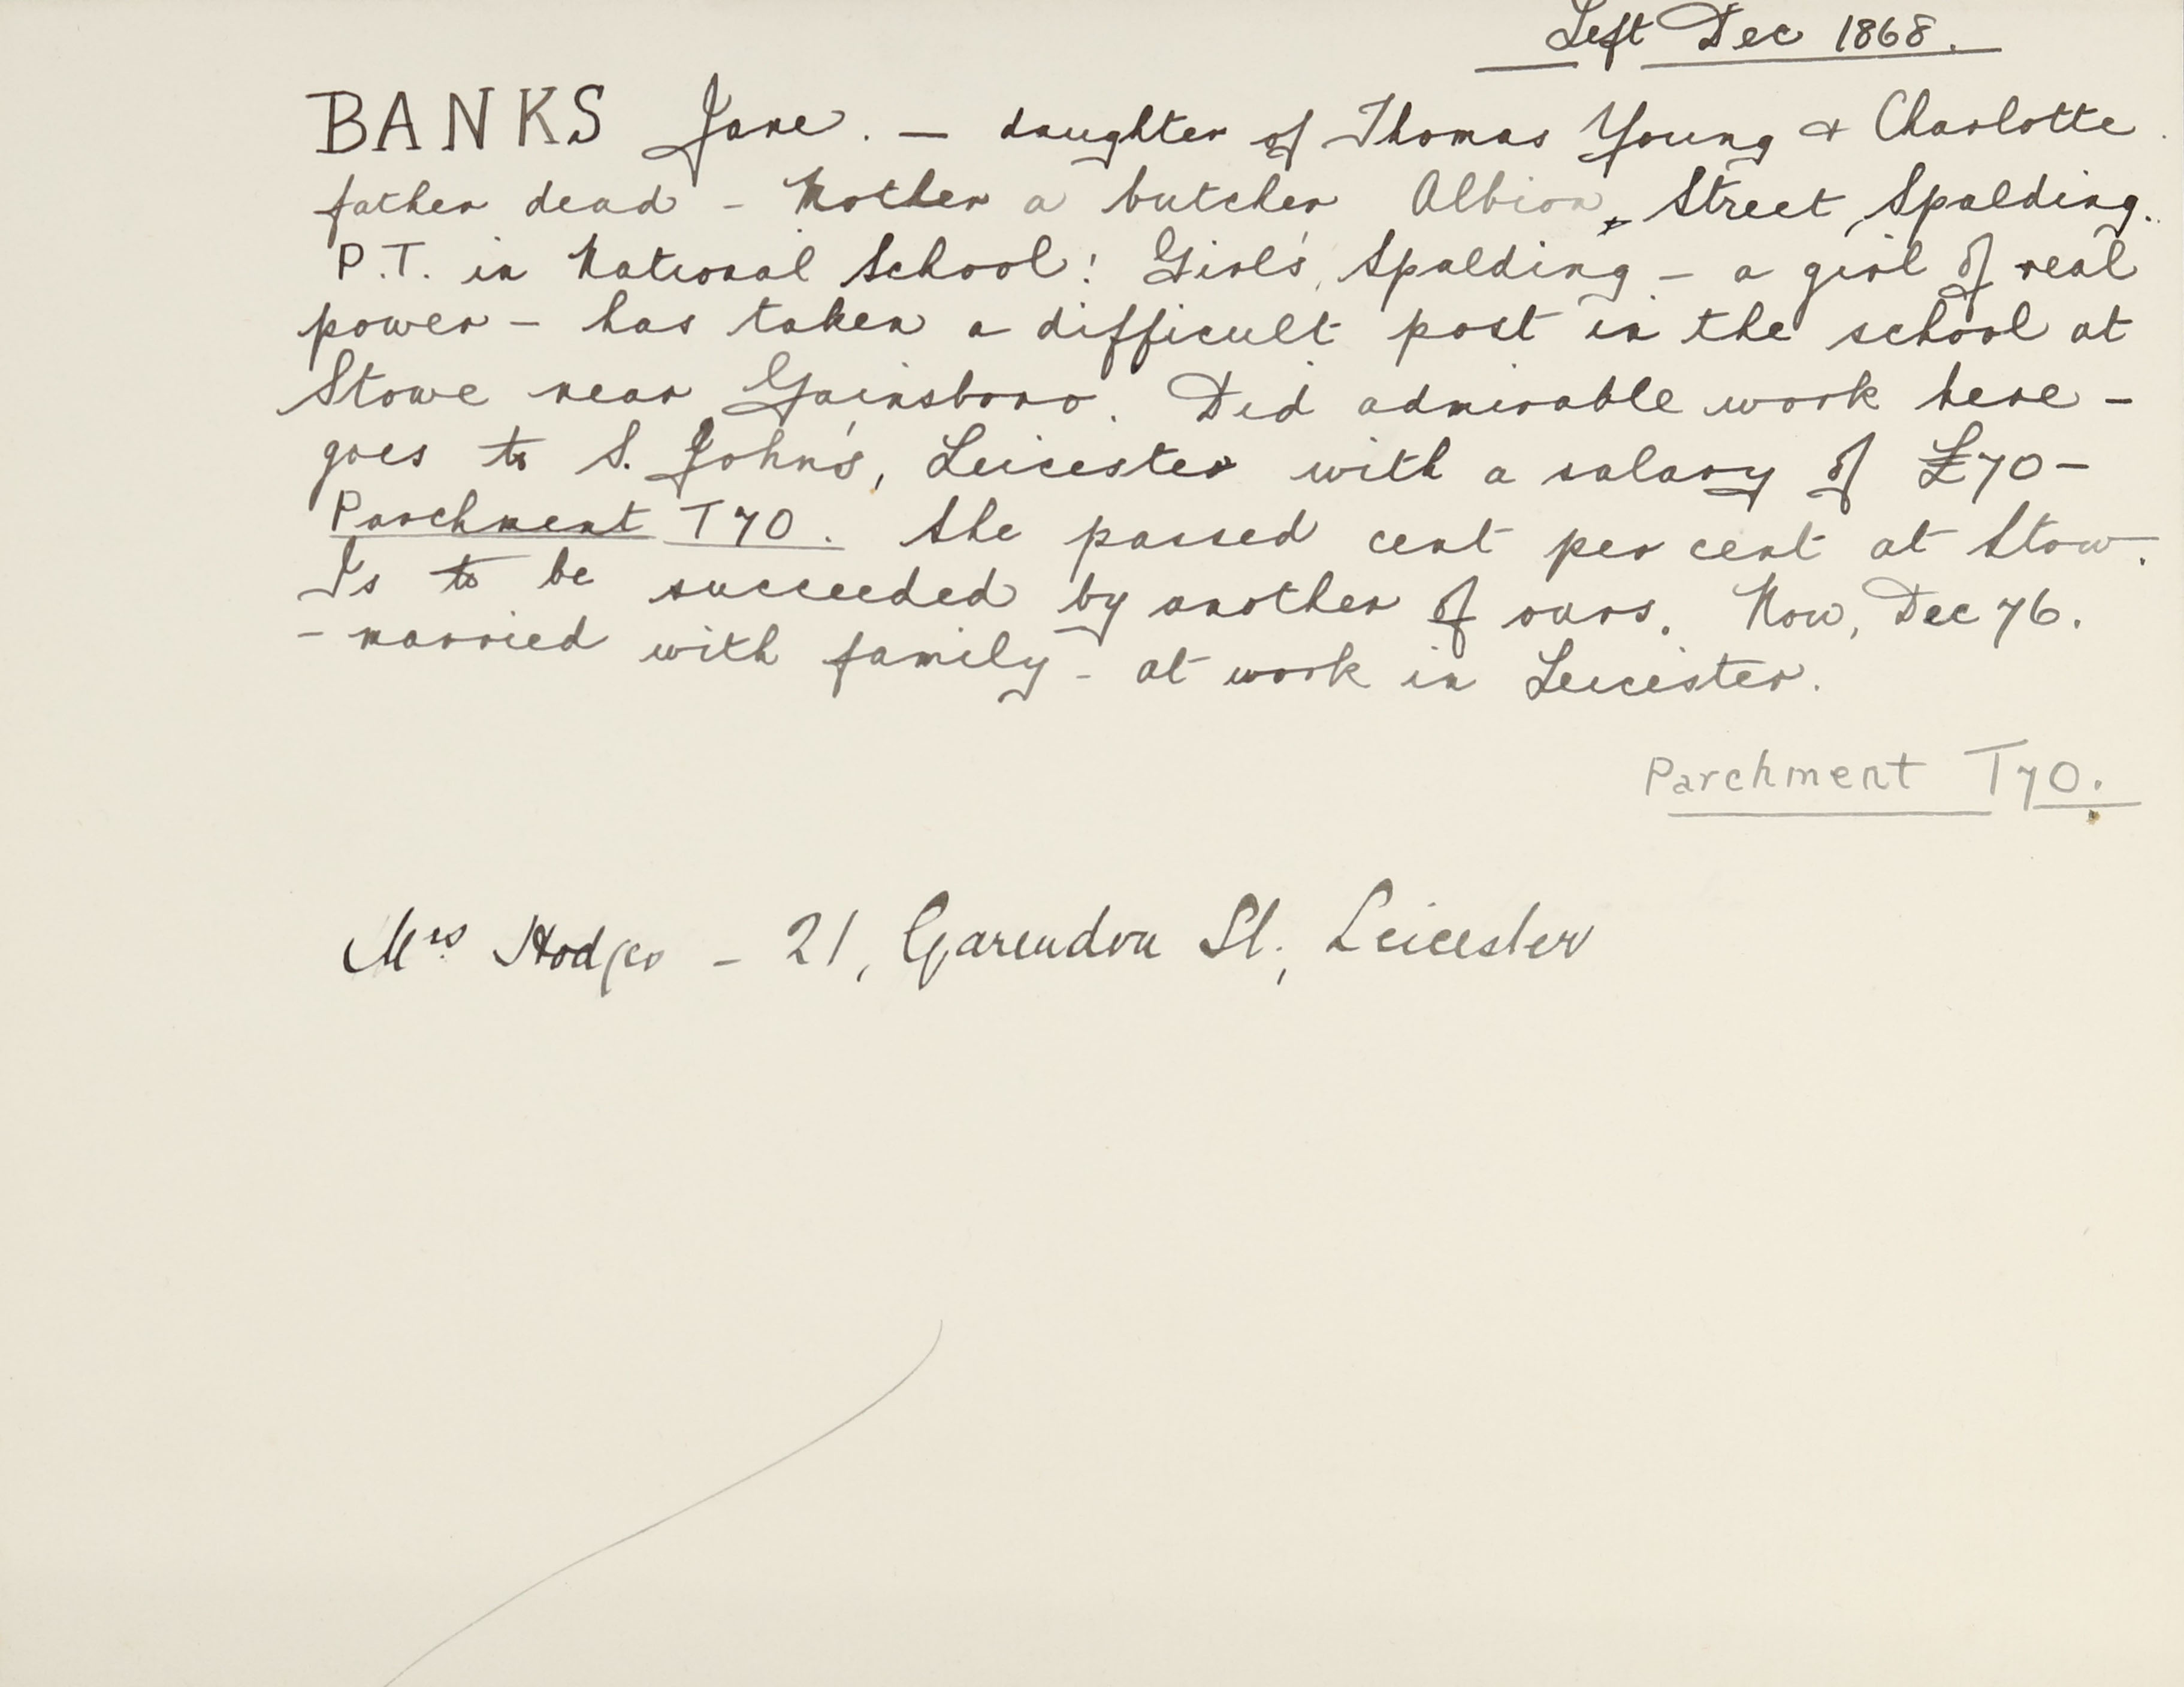 Left Dec 1868.
BANKS Jane. — daughter of Thomas Young & Charlotte
father dead - Mother a butcher Albion Street, Spalding.
P.T. in National School: Girls', Spalding - a girl of real
power - has taken a difficult post in the school at
Stowe near Gainsboro. Did admirable work here -
goes to S. John's, Leicester with a salary of £70 -
Parchment T70. She passed cent per cent at Stow.
Is to be succeeded by another of ours. Now, Dec 76.
- married with family - at work in Leicester.
Parchment T70.
Mrs Hodges - 21, Garendon St., Leicester